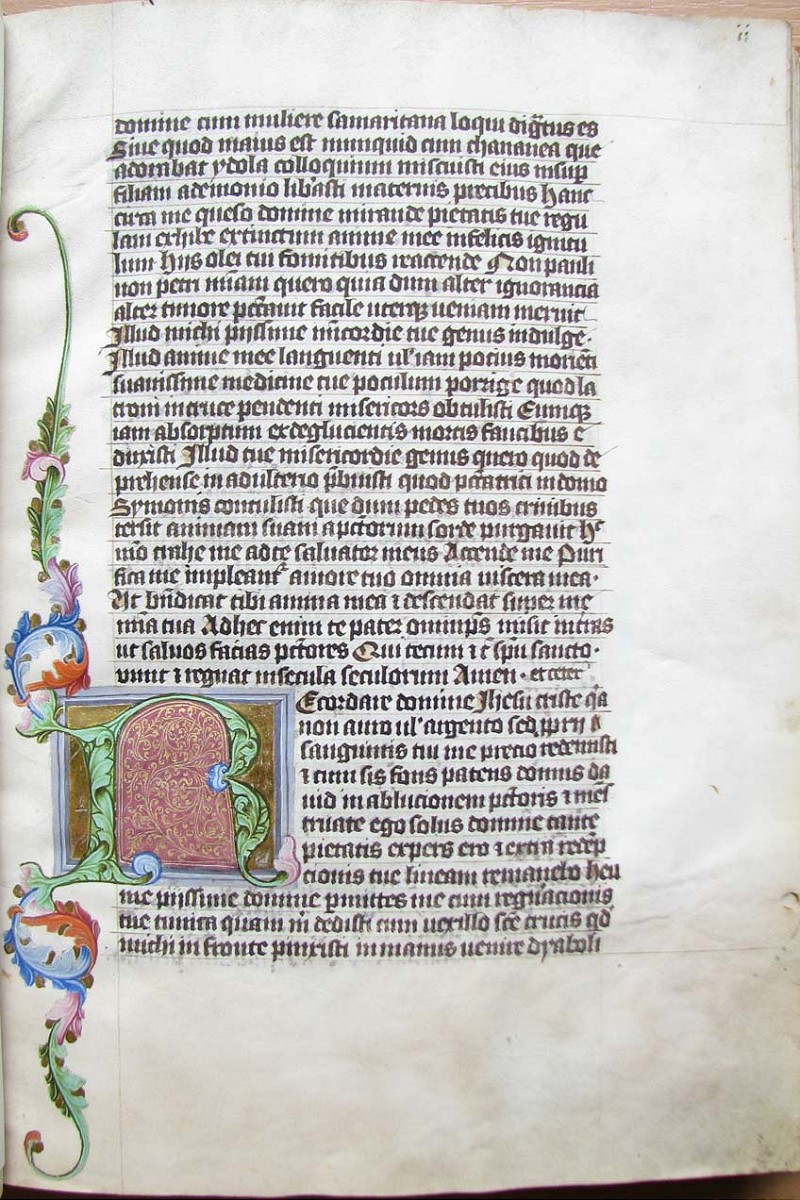 ii
domine cum muliere samaritana loqui dig̃tus es
Siue quod maius est nunquid cum chananea que
adorabat ydola colloquium miscuisti eius insup̱
filiam ademonio lib'asti maternis precibus Hanc
circa me queso domine mirande pietatis tue regu
lam exhibe extinctum anime mee infelicis ignicu
lum Hijs olei tui fomitibus reaccende Non pauli
non petri ueniam quero quia dum alter ignorancia
alter timore pccauit facile uterqꝫ ueniam meruit
Illud michi pijssime mīcordie tue genus indulge·
Illud anime mee languenti ul' iam pocius morienti
suauissime medicine tue poculum porrige quod la
troni incruce pendenti misericors obtulisti Eumqꝫ
iam absorptum exdeglucientis mortis faucibus e
duxisti Illud tue misericordie genus quero quod de
prehense in adulterio p̃buisti quod pctatrici in domo
Symonis contulisti que dum pedes tuos crinibus
tersit animam suam a pctorum sorde purgauit
mō trahe me adte saluator meus Accende me Puri
fica me impleant᷑ amore tuo omnia uiscera mea·
Ut bn̄dicat tibi anima mea ⁊ descendat super me
mīa tua Adhec enim te pater omnip̄s misit in terras
ut saluos facias pctores Qui tecum ⁊ c̄ spū sancto·
viuit ⁊ regnat insecula seculorum Amen· et cetera
Recordare domine Jhesu criste q̄a
non auro ul' argento sed ꝓprij
sanguinis tui me precio redemisti
⁊ cum sis fons patens domus da
uid in ablucionem pctoris ⁊ mens
truate ego solus domine tante
pietatis expers ero ⁊ extra recep
cionis tue lineam remanebo heu
me pijssime domine p̱mittes me cum regn̄acionis
tue tunica quam m̄ dedisti cum uexillo sc̄e crucis qd̄
michi in fronte pinxisti in manus uenire dyaboli